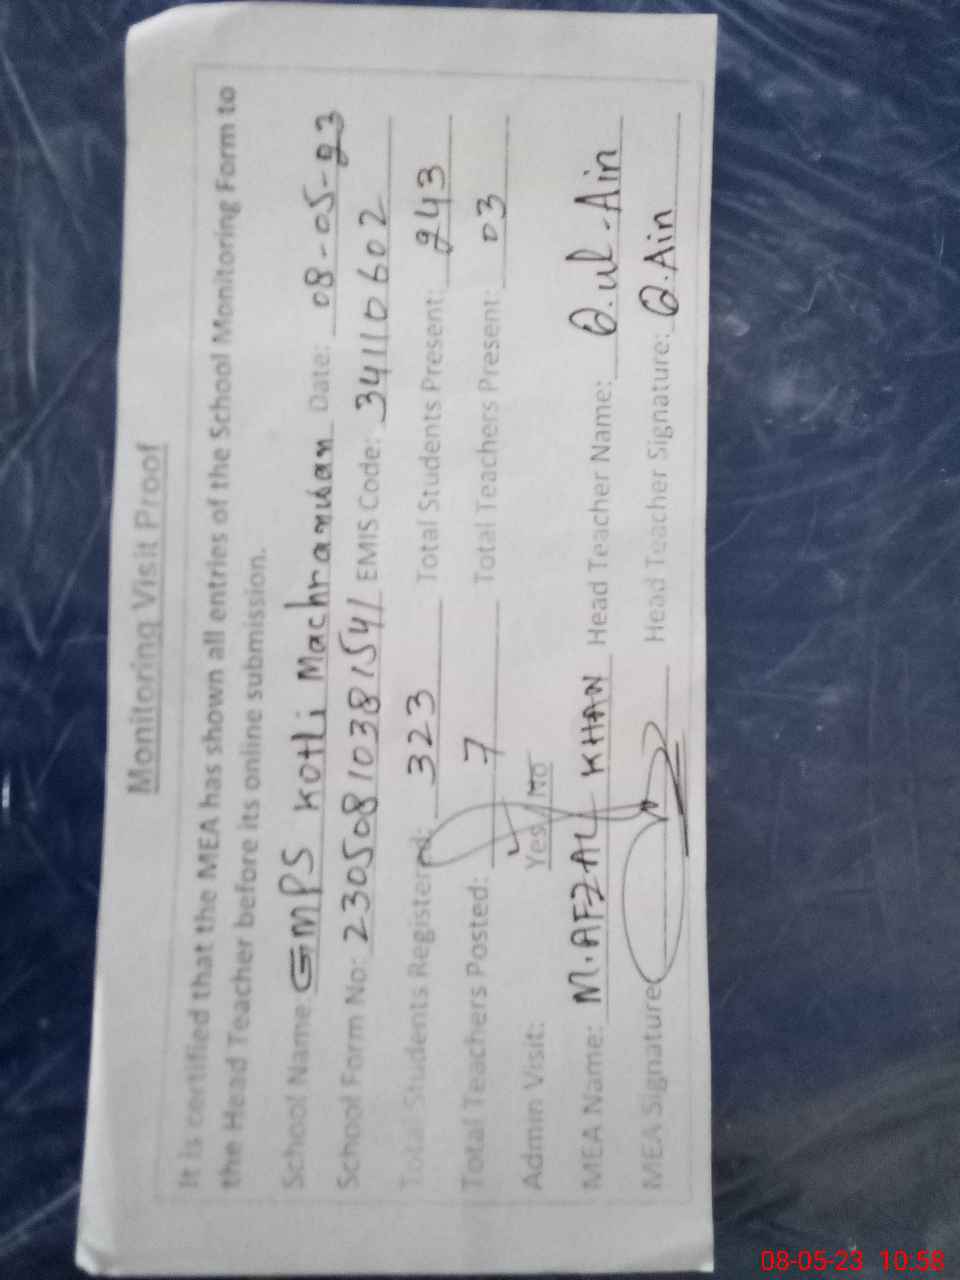 Monitoring Visit Proof
It is certified that the MEA has shown all entries of the School Monitoring Form to
the Head Teacher before its online submission.
School Name: GMPS Kotli Date: 08-05-23
School Form No: 23050810381541 EMIS Code: 34110602
Total Students Registered: 323 Total Students Present: 243
Total Teachers Posted: 7 Total Teachers Present: 03
Admin Visit: Yes / No
MEA Name: M. AFZAL KHAN Head Teacher Name: Q.ul-Ain
MEA Signature: Head Teacher Signature: Q.Ain
08-05-23 10:58